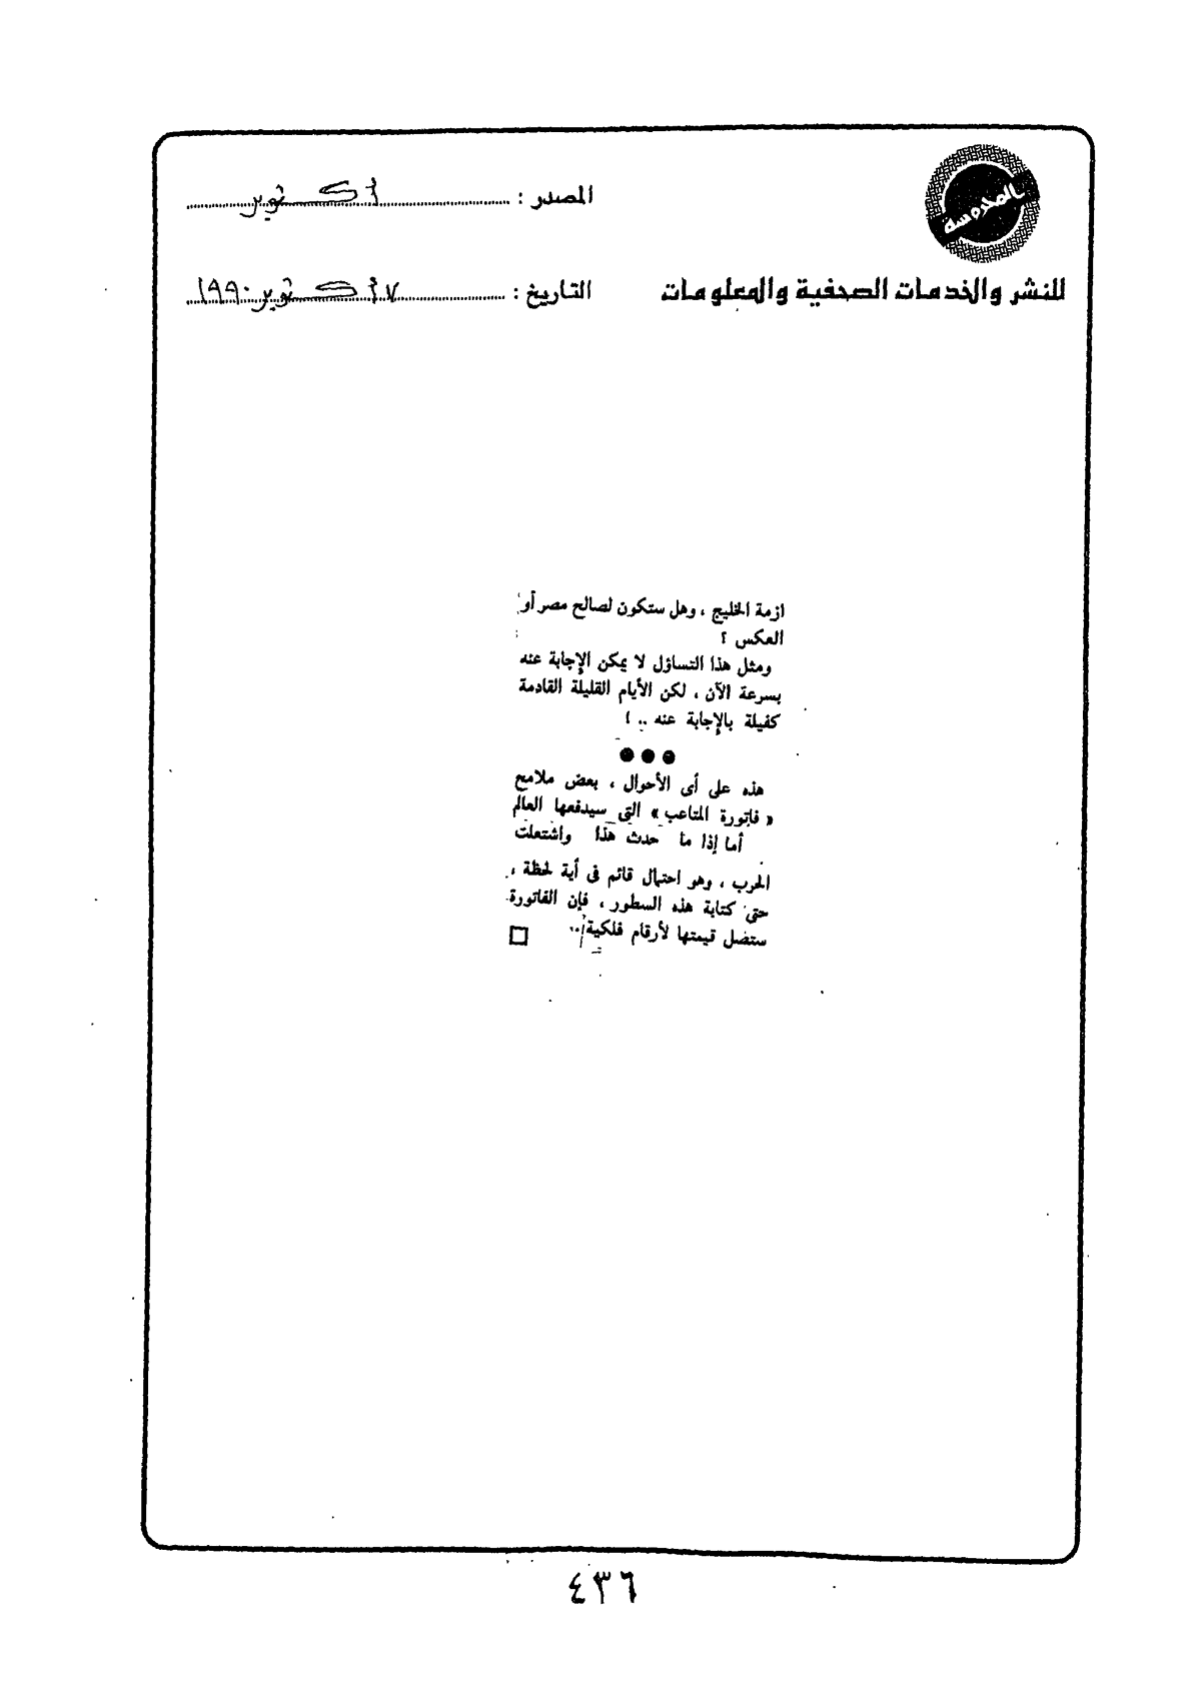 المحروسة
المصدر : أكتوبر
للنشر والخدمات الصحفية والمعلومات
التاريخ : ٧ أكتوبر ١٩٩٠
ازمة الخليج ، وهل ستكون لصالح مصر أو
العكس ؟
ومثل هذا التساؤل لا يمكن الإجابة عنه
بسرعة الآن ، لكن الأيام القليلة القادمة
كفيلة بالإجابة عنه .. !
●●●
هذه على أى الأحوال ، بعض ملامح
« فاتورة المتاعب » التى سيدفعها العالم
أما إذا ما حدث هذا واشتعلت
الحرب ، وهو احتمال قائم فى أية لحظة ،
حتى كتابة هذه السطور ، فإن الفاتورة
ستصل قيمتها لأرقام فلكية ..
٤٣٦